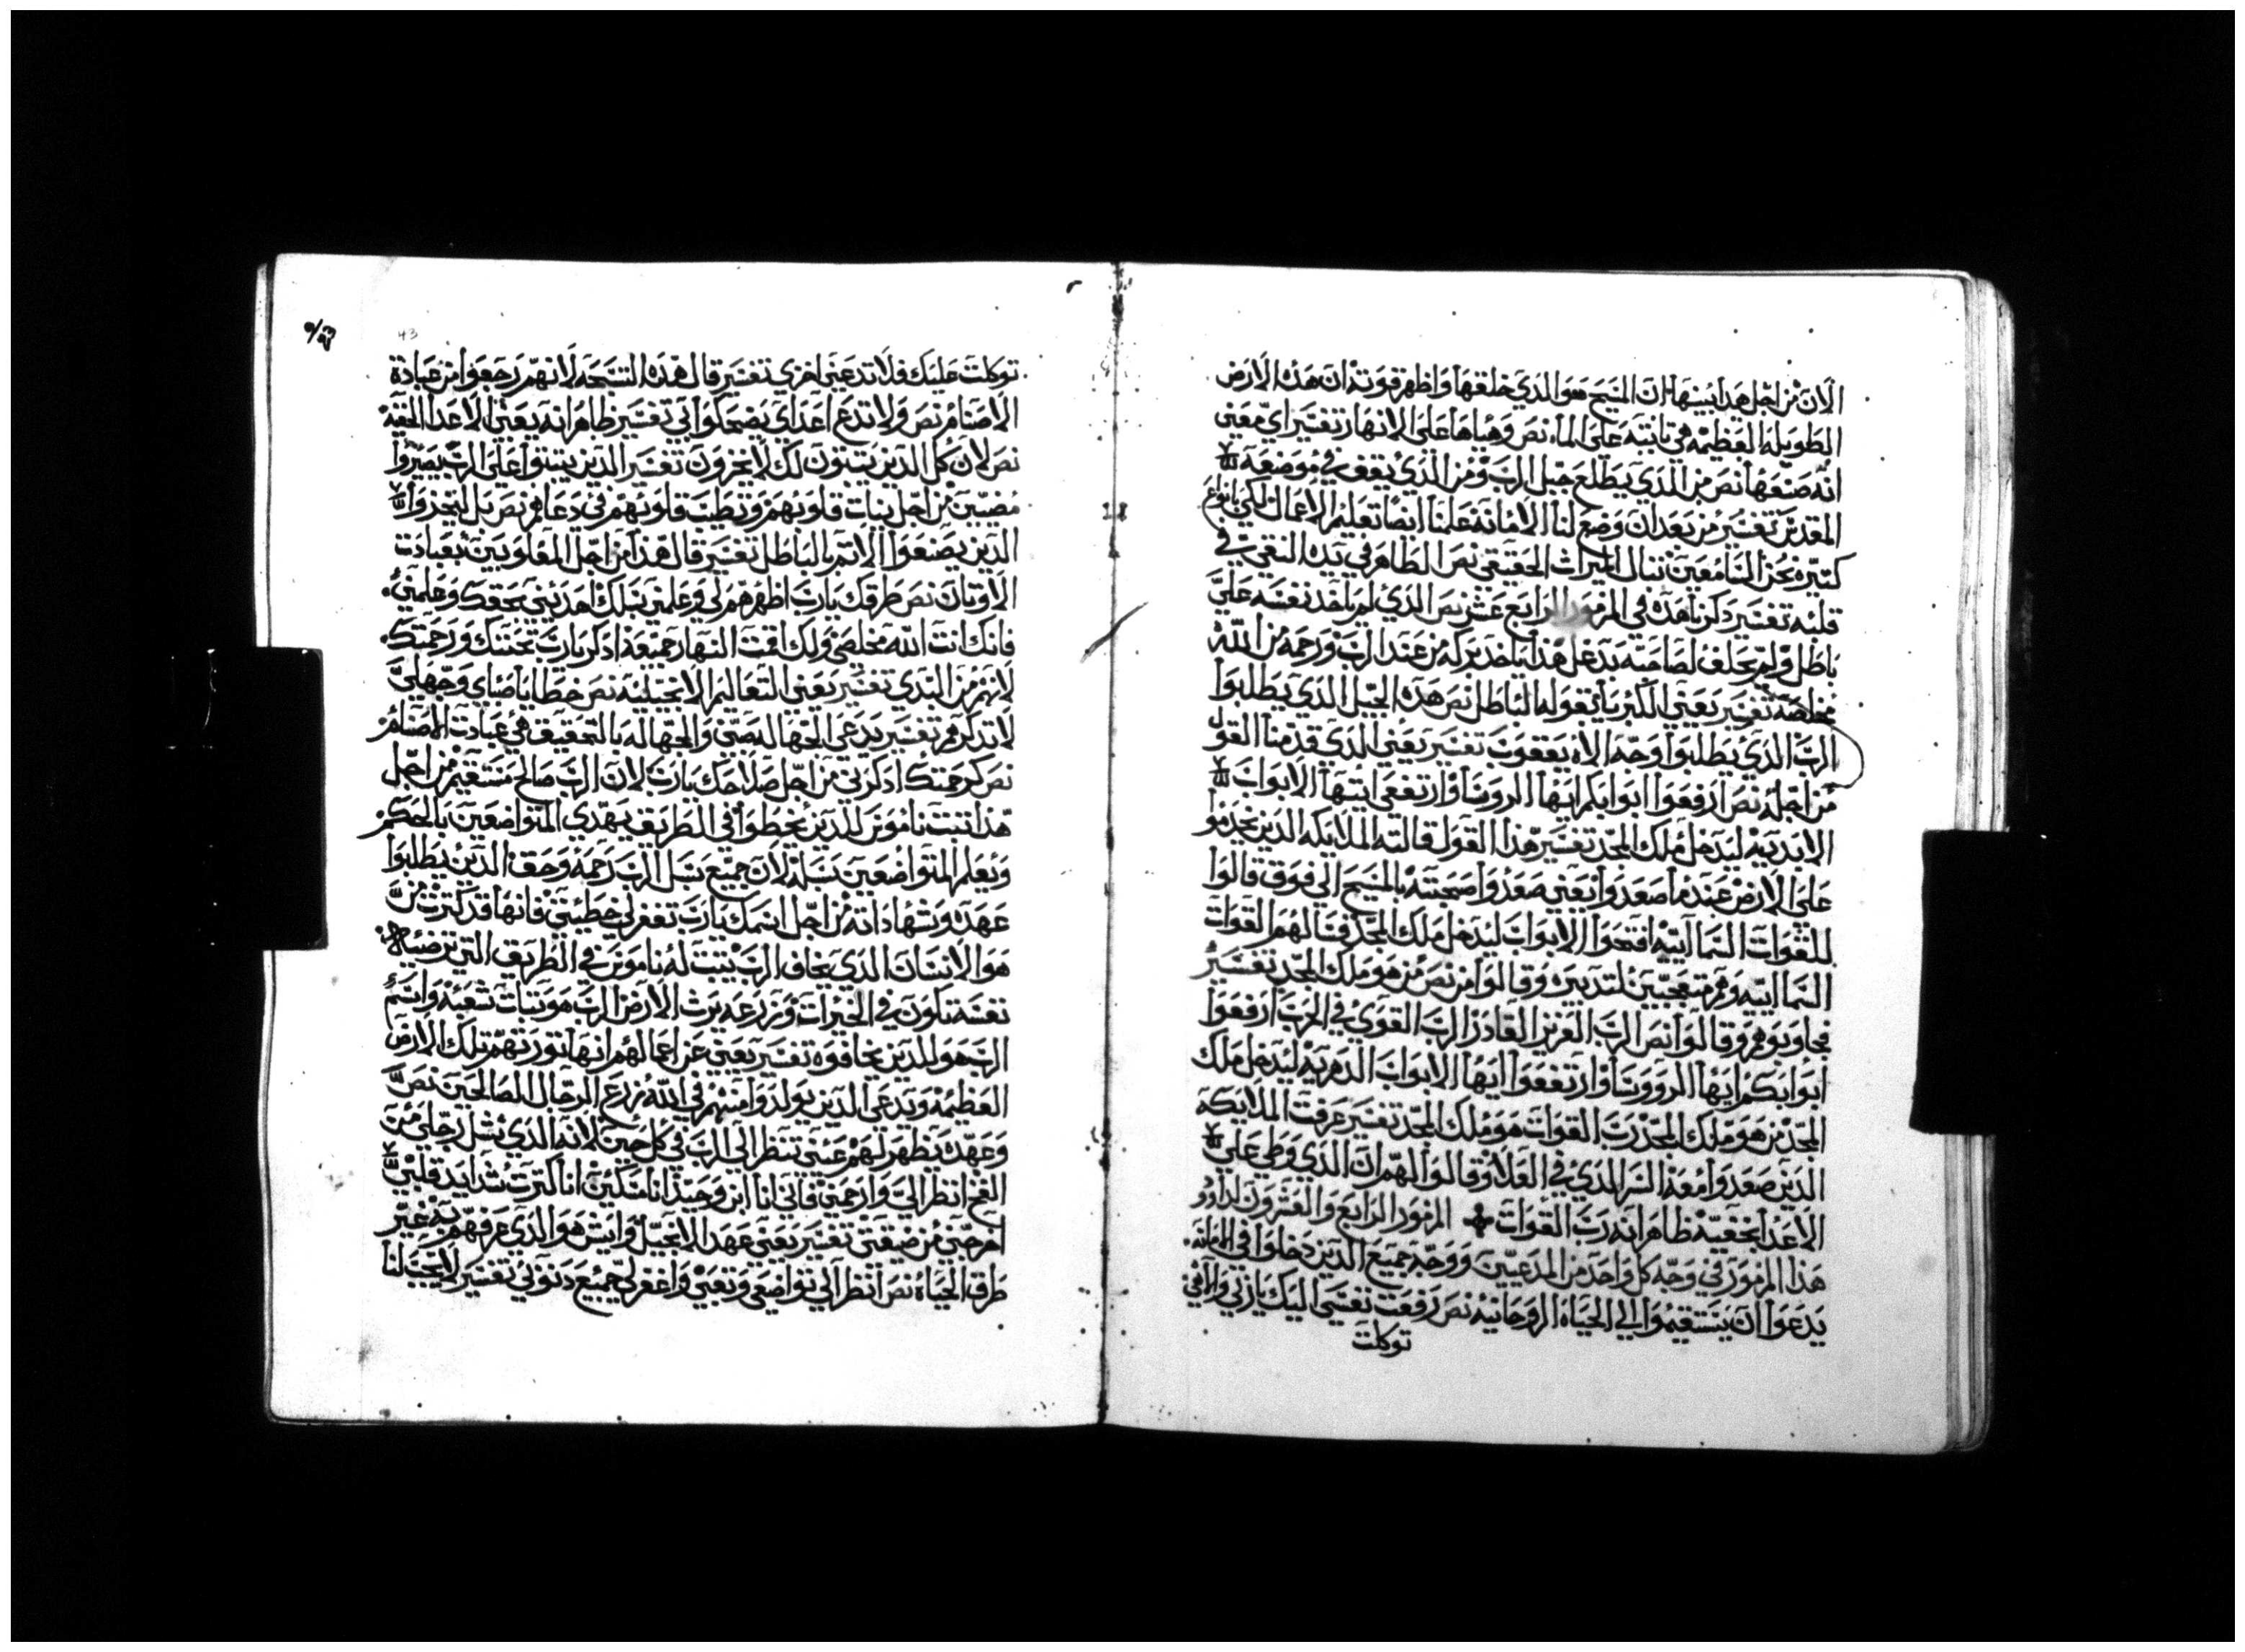 الان من اجل هدا بينها ان المسيح هو الدي خلقها واظهر قوته ان هده الارض
الطويله العظيمه هي تابته على الماء نص وهياها على الانهار تفسير اي معنى
انه صنعها نص من الدي يطلع جبل الرب ومن الدي يقف في موضعه
المقدس تفسير من بعد ان وضع لنا الامانه علمنا ايضا تعليم الاعمال لكي بانواع
كتيره نحن السامعين ننال الميرات الحقيقي نص الطاهر في يده النقي في
قلبه تفسير دكرنا هده في المزمور الرابع عشر نص الدي لم ياخد نفسه على
باطل ولم يحلف لصاحبه بدغل هدا ياخد بركه من عند الرب ورحمه من الله
مخلصه تفسير يعني الكبريا بقوله الباطل نص هده الجيل الدي يطلبوا
الرب الدي يطلبوا وجه الاه يعقوب تفسير يعني الدي قدمنا القول
من اجله نص ارفعوا ابوابكم ايها الروسا وارتفعي ايتها الابواب
الابديه ليدخل ملك المجد تفسير هدا القول قالته الملايكه الدين يخدموا
على الارض عند ما صعد وا يعني صعدوا صحبته بالمسيح الى فوق قالوا
للقوات السماييه افتحوا الابواب ليدخل ملك المجد فتالهم القوات
السماييه وهم متعجبين لتدبيره وقالوا من نص من هو ملك المجد تفسير
فجاوبوهم وقالوا نص الرب العزيز القادر الرب القوي في الحرب ارفعوا
ابوابكم ايها الروسا وارتفعوا ايها الابواب الدهريه ليدخل ملك
المجد من هو ملك المجد رب القوات هو ملك المجد تفسير عرفت الملايكه
الدين صعدوا معه السر الدي في العلا وقالوا لهم ان الدي وطى على
الاعدا بحقيه ظاهر انه رب القوات المزمور الرابع والعشرون لداوود
هدا المزمور في وجه كل واحد من المدعيين ووجه جميع الدين دخلوا في الامانه
يدعوا ان يستقيموا الى الحياه الروحانيه نص رفعت نفسي اليك يا ربي والاهي
توكلت
43
توكلت عليك فلا تدعني اخزي تفسير قال هده التسبحه لانهم رجعوا من عبادة
الاصنام نص ولا تدع اعداي يضحكوا بي تفسير ظاهر انه يعني الاعدا الحقيه
نص لان كل الدين يتبتون لك لا يخزون تفسير الدين يتبتوا على الرب يصيروا
مضيين من اجل تبات قلوبهم وتطيب قلوبهم في دعاهم نص بل ليخزوا
الدين يصنعوا الاتم بالباطل تفسير قال هدا من اجل المغلوبين بعبادت
الاوتان نص طرقك يارب اظهرهم لي وعلمني سبلك اهديني بحقك وعلمني
فانك انت الله مخلصي ولك اقمت النهار جميعه ادكر يارب تحننك ورحمتك
لانهم من البدي تفسير يعني التعاليم الانجيليه نص خطايا صباي وجهلي
لا تدكرهم تفسير يدعي الجهاله صبي والجهاله بالتحقيق هي عبادت الاصنام
نص كرحمتك ادكرني من اجل صلاحك يارب لان الرب صالح مستقيم من اجل
هدا تبت ناموس للدين يخطوا في الطريق يهدي المتواضعين بالحكم
ويعلم المتواضعين سبله لان جميع سبل الرب رحمه وحق الدين يطلبوا
عهده وشهاداته من اجل اسمك يارب تغفر لي خطيتي فانها قد كترت من
هو الانسان الدي يخاف الرب يتبت له ناموس في الطريق التي ترضيه
نفسه تكون في الخيرات وزرعه يرت الارض الرب هو تبات شعبه واسم
الرب هو للدين يخافوه تفسير يعني عن اعمالهم انها تورتهم تلك الارض
العظيمه ويدعي الدين يولدوا منهم في الله زرع الرجال الصالحين نص
وعهده يظهر لهم عيني تنظر الى الرب في كل حين لانه الدي يسل رجلي من
الفخ انظر الي وارحمني فاني انا ابن وحيد انا مسكين انا كترت شدايد قلبي
اخرجني من ضيقتي تفسير يعني عهد الانجيل وايش هو الدي عرفهم به غير
طرقه الحياه نص انظر الى تواضعي وتعبي واغفر لي جميع دنوبي تفسير لا يجب لنا